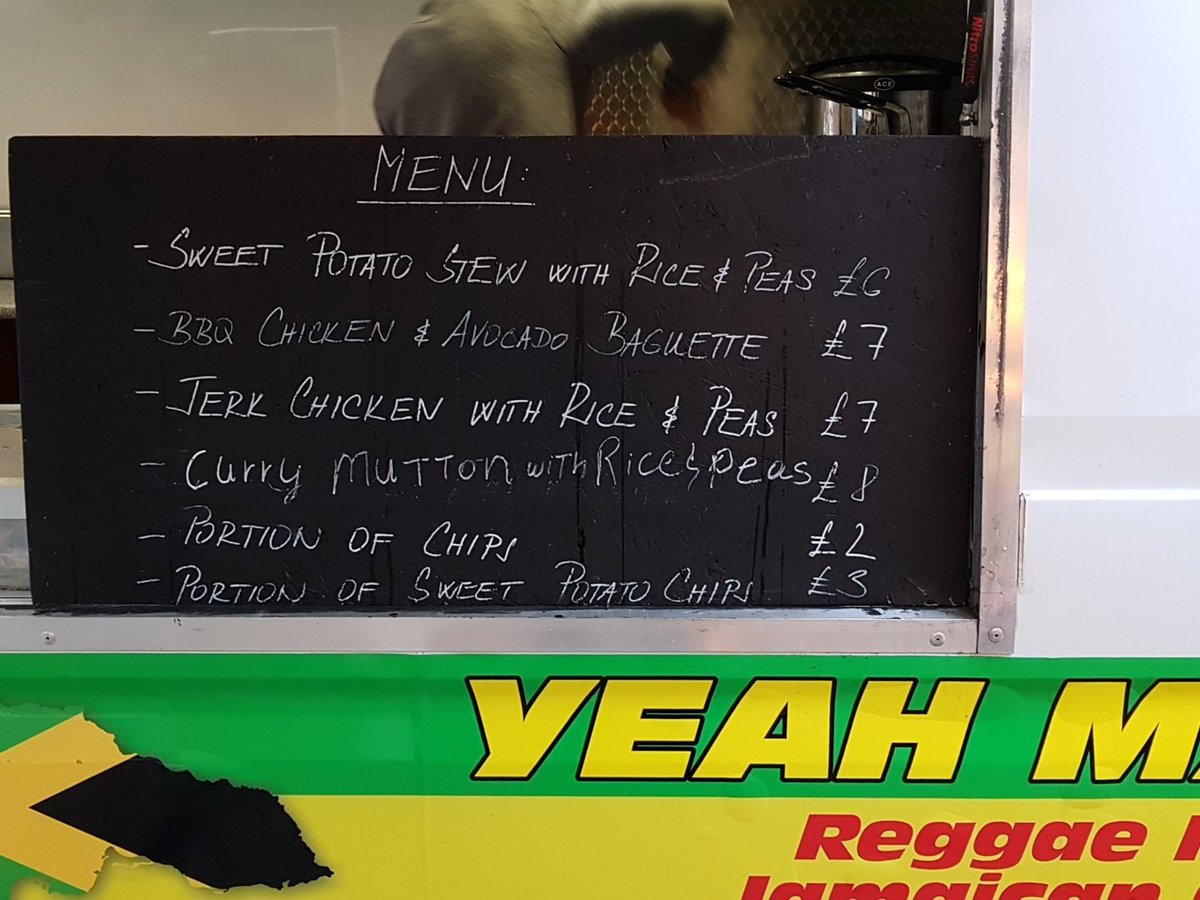 NitroStrike
ACE
MENU:
- SWEET POTATO STEW WITH RICE & PEAS £6
- BBQ CHICKEN & AVOCADO BAGUETTE £7
- JERK CHICKEN WITH RICE & PEAS £7
- Curry MUTTON with Rice & peas £8
- PORTION OF CHIPS £2
- PORTION OF SWEET POTATO CHIPS £3
YEAH M
Reggae
Jamaican